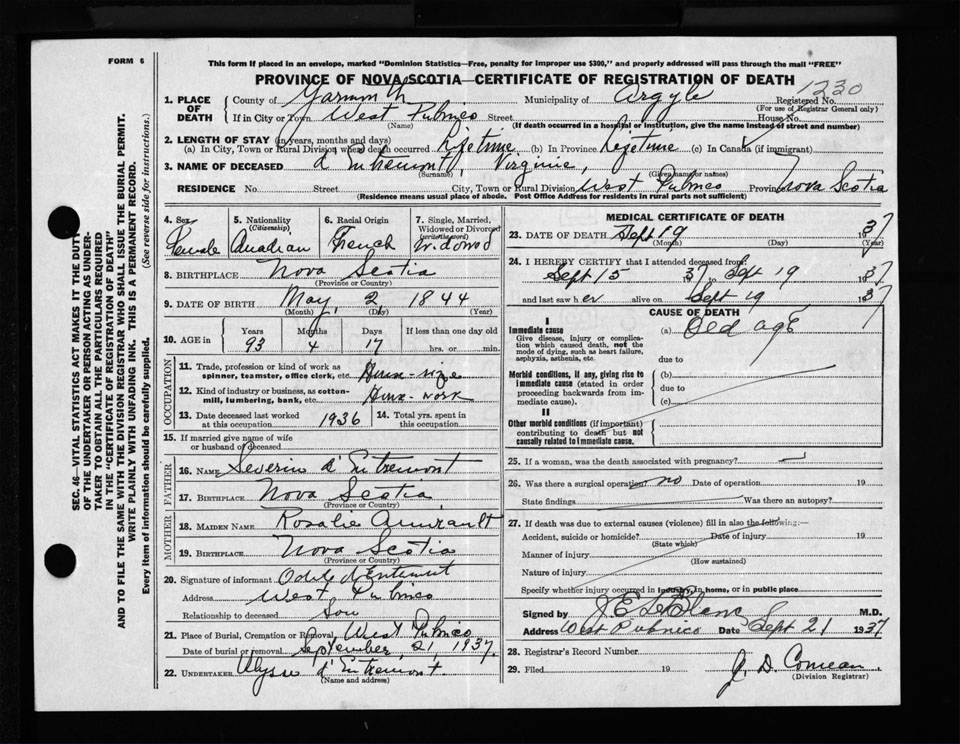 FORM 6
This form if placed in an envelope, marked "Dominion Statistics—Free, penalty for improper use $300," and properly addressed will pass through the mail "FREE"
PROVINCE OF NOVA SCOTIA—CERTIFICATE OF REGISTRATION OF DEATH
1230
1. PLACE OF DEATH County of Yarmouth Municipality of Argyle Registered No.
(For use of Registrar General only)
If in City or Town West Pubnico Street House No.
(Name) (If death occurred in a hospital or institution, give the name instead of street and number)
2. LENGTH OF STAY (in years, months and days)
(a) In City, Town or Rural Division where death occurred Lifetime (b) In Province Lifetime (c) In Canada (if immigrant)
3. NAME OF DECEASED d'Entremont, Virginie,
(Surname) (Given name or names)
RESIDENCE No. Street City, Town or Rural Division West Pubnico Province Nova Scotia
(Residence means usual place of abode. Post Office Address for residents in rural parts not sufficient)
4. Sex Female
5. Nationality (Citizenship) Canadian
6. Racial Origin French
7. Single, Married, Widowed or Divorced (write the word) Widowed
8. BIRTHPLACE Nova Scotia
(Province or Country)
9. DATE OF BIRTH May 2, 1844
(Month) (Day) (Year)
10. AGE in Years Months Days If less than one day old
93 4 17 hrs. or min.
OCCUPATION
11. Trade, profession or kind of work as spinner, teamster, office clerk, etc.
12. Kind of industry or business, as cotton-mill, lumbering, bank, etc.
13. Date deceased last worked at this occupation 1936
14. Total yrs. spent in this occupation
15. If married give name of wife or husband of deceased
FATHER
16. NAME Severin d'Entremont
17. BIRTHPLACE Nova Scotia
(Province or Country)
MOTHER
18. MAIDEN NAME Rosalie Amirault
19. BIRTHPLACE Nova Scotia
(Province or Country)
20. Signature of informant d'Entremont
Address West Pubnico
Relationship to deceased Son
21. Place of Burial, Cremation or Removal West Pubnico
Date of burial or removal September, 21, 1937.
22. UNDERTAKER Ulysse d'Entremont.
(Name and address)
MEDICAL CERTIFICATE OF DEATH
23. DATE OF DEATH Sept 19 1937
(Month) (Day) (Year)
24. I HEREBY CERTIFY that I attended deceased from:
Sept 15 37 to Sept 19 1937
and last saw her alive on Sept 19 1937
CAUSE OF DEATH
I
Immediate cause (a) Old age
Give disease, injury or complication which caused death, not the mode of dying, such as heart failure, asphyxia, asthenia, etc.
due to
Morbid conditions, if any, giving rise to immediate cause (stated in order proceeding backwards from immediate cause).
(b)
due to
(c)
II
Other morbid conditions (if important) contributing to death but not causally related to immediate cause.
25. If a woman, was the death associated with pregnancy?
26. Was there a surgical operation? no Date of operation 19
State findings Was there an autopsy?
27. If death was due to external causes (violence) fill in also the following:—
Accident, suicide or homicide? Date of injury 19
(State which)
Manner of injury
(How sustained)
Nature of injury
Specify whether injury occurred in industry, in home, or in public place
Signed by J. E. LeBlanc M.D.
Address West Pubnico Date Sept 21 1937
28. Registrar's Record Number
29. Filed 19 J. D. Comeau
(Division Registrar)
SEC. 46—VITAL STATISTICS ACT MAKES IT THE DUTY
OF THE UNDERTAKER OR PERSON ACTING AS UNDER-
TAKER TO OBTAIN ALL THE PARTICULARS REQUIRED
IN THE "CERTIFICATE OF REGISTRATION OF DEATH"
AND TO FILE THE SAME WITH THE DIVISION REGISTRAR WHO SHALL ISSUE THE BURIAL PERMIT.
WRITE PLAINLY WITH UNFADING INK. THIS IS A PERMANENT RECORD.
Every item of information should be carefully supplied. (See reverse side for instructions.)